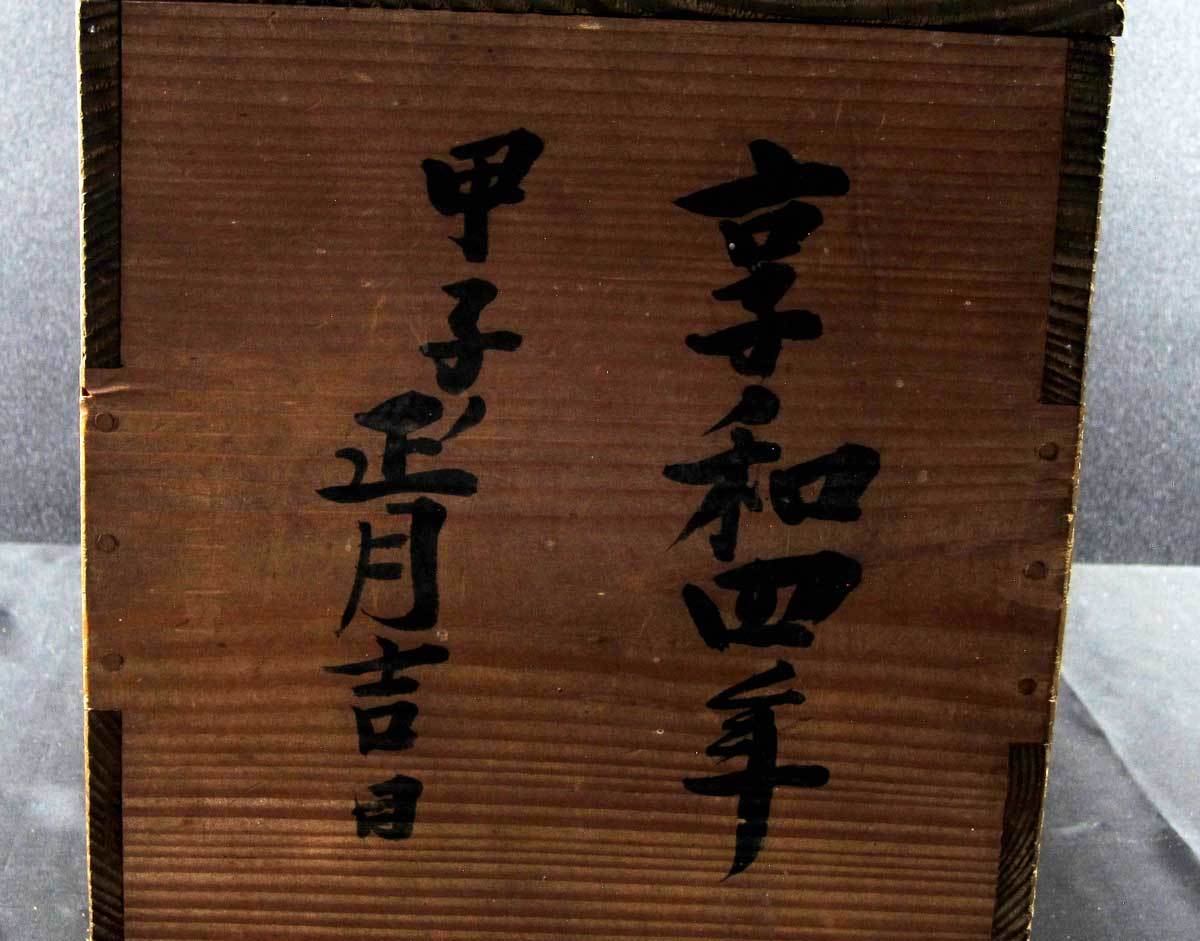 享和四年
甲子正月吉日